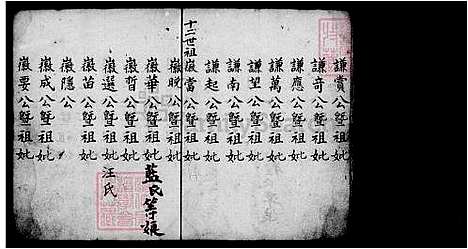 謙賞公暨祖妣
謙奇公暨祖妣
謙應公暨祖妣
謙萬公暨祖妣
謙望公暨祖妣
謙南公暨祖妣
謙起公暨祖妣
十二世祖徽當公暨祖妣
徽晥公暨祖妣
徽華公暨祖妣藍氏等娘
徽哲公暨祖妣
徽選公暨祖妣汪氏
徽苗公暨祖妣
徽隱公
徽成公暨祖妣
徽要公暨祖妣